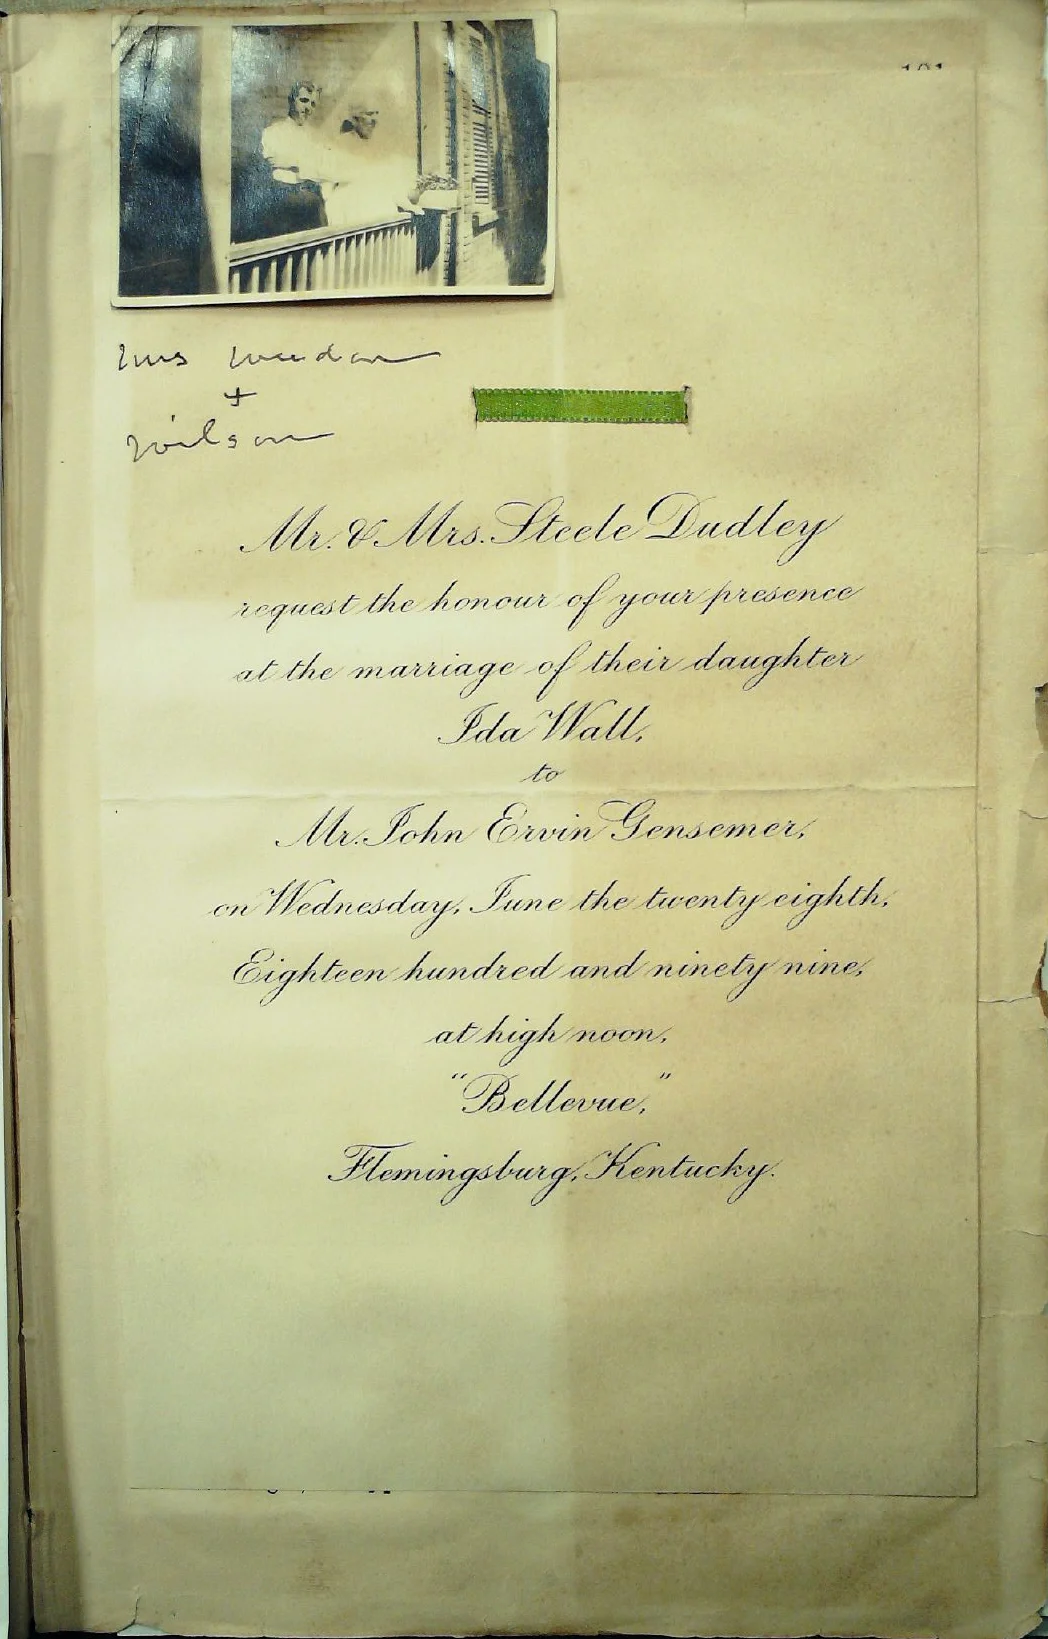 Mrs
+
Wilson
Mr. & Mrs. Steele Dudley
request the honour of your presence
at the marriage of their daughter
Ida Wall,
to
Mr. John Ervin Gensemer,
on Wednesday, June the twenty eighth,
Eighteen hundred and ninety nine,
at high noon,
"Bellevue,"
Flemingsburg, Kentucky.